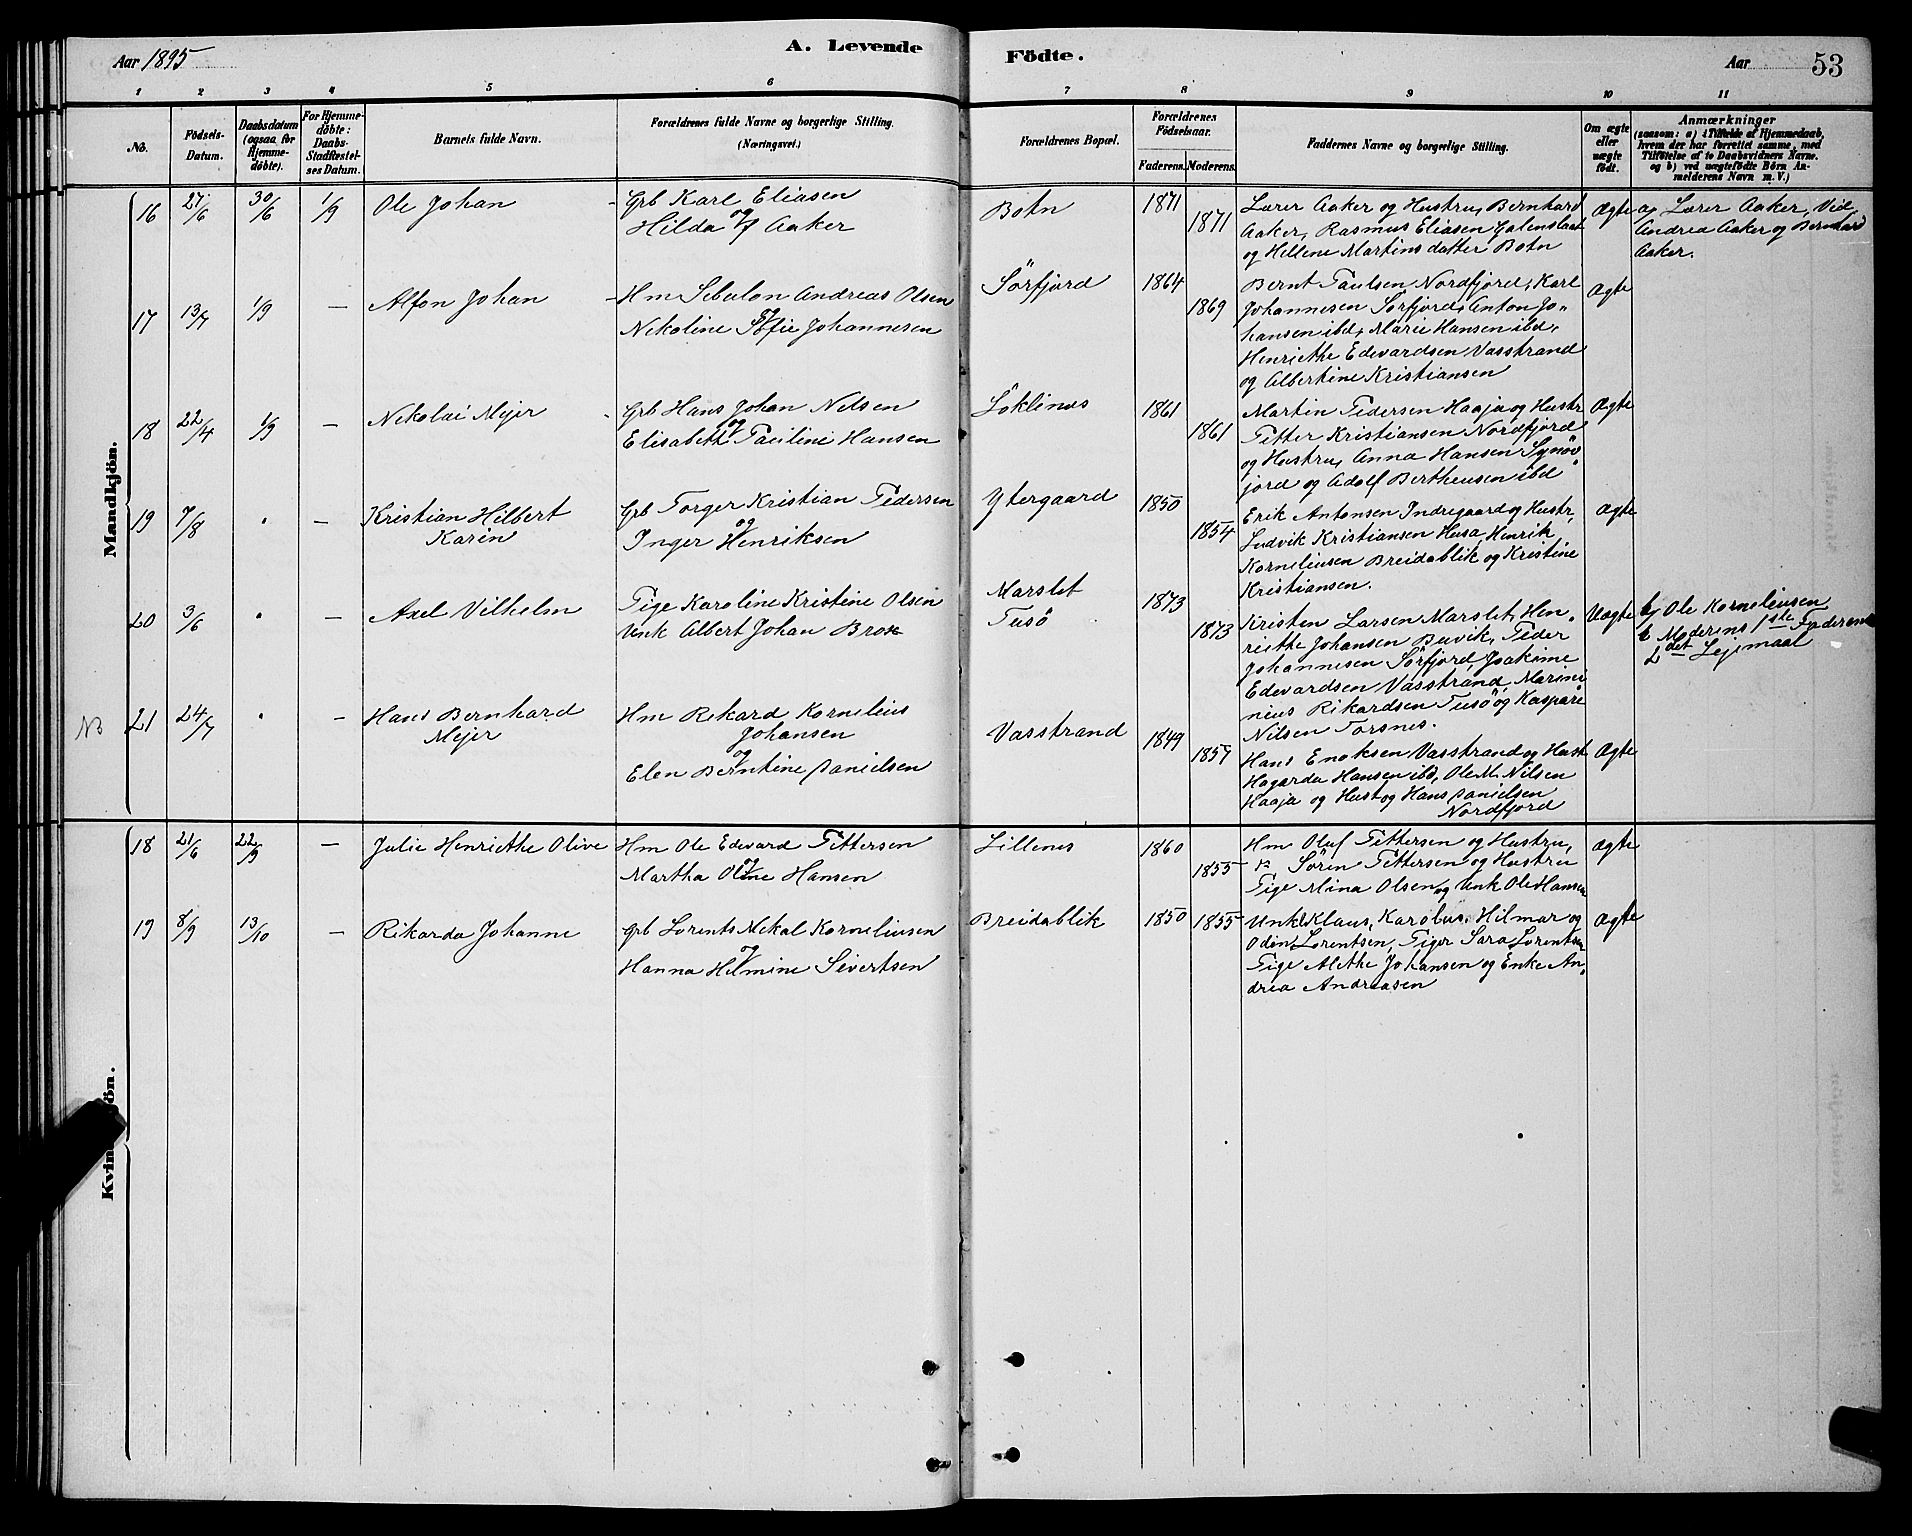 Aar 1895
A. Levende
Födte.
Aar
53
1 2 3 4 5 6 7 8 9 10 11
No.
Födsels-Datum.
Daabsdatum (ogsaa for Hjemmedöbte).
For Hjemmedöbte: Daabs-Stadfæstelses Datum.
Barnets fulde Navn.
Forældrenes fulde Navne og borgerlige Stilling.
(Næringsvei.)
Forældrenes Bopæl.
Forældrenes Födselsaar.
Faderens. Moderens.
Faddernes Navne og borgerlige Stilling.
Om ægte eller uægte födt.
Anmærkninger
(saasom: a) i Tilfælde af Hjemmedaab,
hvem der har forrettet samme, med
Tilföielse af to Daabsvidners Navne.
og b) ved uægtefödte Börn Anmelderens Navn m. V.)
Mandkjön.
16 27/6 30/6 1/9 Ole Johan
Grb Karl Eliasen
og
Hilda Aaker
Botn
1871 1871
Lærer Aaker og Hustru, Bernhard
Aaker, Rasmus Eliasen
og Hellene Martinsdatter Botn
Ægte
a, Lærer Aaker, Vid
Andrea Aaker og Bernhard
Aaker.
17 13/7 1/9 — Alfon Johan
Hm Sebulon Andreas Olsen
og
Nikoline Sofie Johannesen
Sörfjord
1864 1869
Bernt Paulsen Nordfjord, Karl
Johannesen Sörfjord, Anton Jo-
hansen ibd, Marie Hansen ibd,
Henriethe Edevardsen Vasstrand
og Albertine Kristiansen
Ægte
18 22/4 1/9 — Nikolai Mejer
Grb Hans Johan Nilsen
og
Elisabeth Pauline Hansen
Löklines
1861 1861
Martin Pedersen Haaja og Hustr
Petter Kristiansen Nordfjord
og Hustru, Anna Hansen
jord og Adolf Bertheusen ibd
Ægte
19 7/8 " — Kristian Hilbert
Karin
Grb Torger Kristian Pedersen
og
Inger Henriksen
Ytergaard
1850 1854
Erik Antonsen Indregaard og Hustr,
Ludvik Kristiansen Husa, Henrik
Korneliusen Breidablik og Kristine
Kristiansen.
Ægte
20 3/6 " — Axel Vilhelm
Pige Karoline Kristine Olsen
Unk Albert Johan Brox
Marslet
Tusö
1873 1873
Kristen Larsen Marslet, Hen-
riethe Johansen Buvik, Peder
Johannesen Sörfjord, Joakime
Edevardsen Vasstrand, Marini
nius Rikardsen Tusö og Kaspare
Nilsen Torsnes.
Uægte
b, Ole Korneliusen
Moderens 1ste Faderens
2det Lejermaal
NB 21 24/7 " — Hans Bernhard
Mejer
Hm Rikard Kornelius
Johansen
og
Elen Berntine Danielsen
Vasstrand
1849 1857
Hans Enoksen Vasstrand og Hust
Hagarda Hansen ibd, Ole M. Nilsen
Haaja og Hust og Hans Danielsen
Nordfjord
Ægte
Kvindekjön.
18 21/6 22/9 — Julie Henriethe Olive
Hm Ole Edevard Pettersen
og
Martha Oline Hansen
Lillenes
1860 1855
Hm Oluf Pettersen og Hustru,
Sören Pettersen og Hustru
Pige Mina Olsen og Unk Ole Hansen
Ægte
19 8/9 13/10 — Rikarda Johanne
Grb Lorents Mekal Korneliusen
og
Hanna Helmine Sivertsen
Breidablik
1850 1855
Unk Klaus, Karolus, Hilmar og
Odin Lorentsen, Piger Sara Lorentsen
Pige Alethe Johansen og Enke An-
drea Andreasen
Ægte